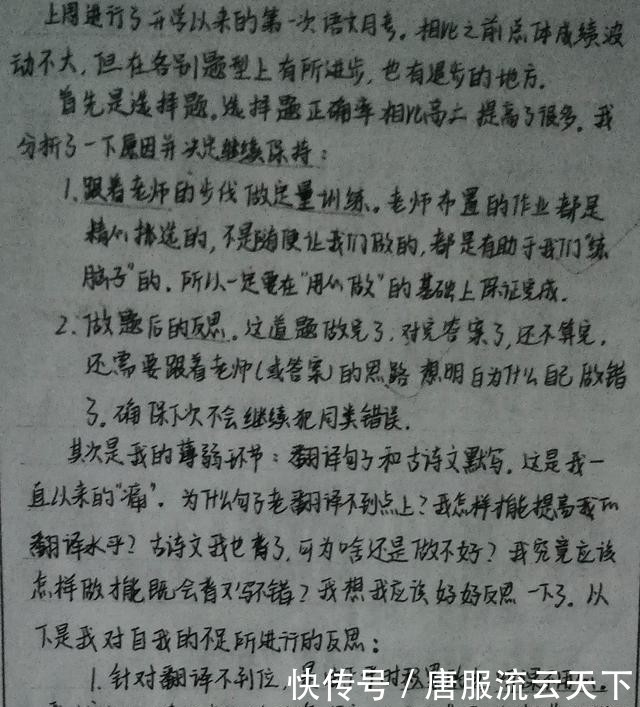 上周进行了开学以来的第一次语文月考。相比之前总体成绩波
动不大，但在各别题型上有所进步，也有退步的地方。
首先是选择题。选择题正确率相比高二提高了很多。我
分析了一下原因并决定继续保持：
1.跟着老师的步伐做定量训练。老师布置的作业都是
精心挑选的，不是随便让我们做的，都是有助于我们“练
脑子”的。所以一定要在“用心做”的基础上保证完成。
2.做题后的反思。这道题做完了，对完答案了，还不算完。
还需要跟着老师(或答案)的思路想明白为什么自己做错
了。确保下次不会继续犯同类错误。
其次是我的薄弱环节：翻译句子和古诗文默写。这是我一
直以来的“痛”。为什么句子老翻译不到点上？我怎样才能提高我的
翻译水平？古诗文我也背了，可为啥还是做不好？我究竟应该
怎样做才能既会背又写不错？我想我应该好好反思一下了。以
下是我对自我的不足所进行的反思：
1.针对翻译不到位，
快传号/唐服流云天下